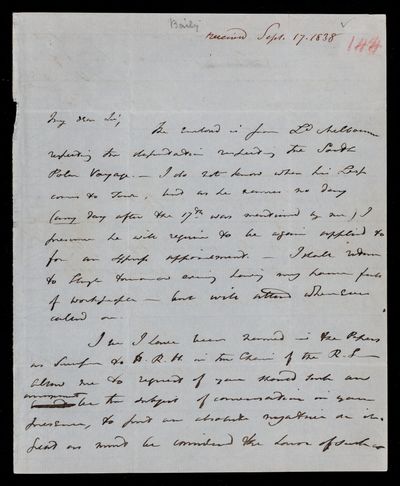 Baily
received Sept. 17. 1838
144
My dear Sir,
The enclosed is from Ld Melbourne
respecting the deputation respecting the South
Polar Voyage. — I do not know when his Lordp
comes to Town, but as he names no day
(any day after the 17th was mentioned by me) I
presume he will require to be again applied to
for an appointment. — I shall return
to Slough tomorrow evening having my hands full
of work — but will attend whenever
called on.
I see I have been named in the Papers
as Successor to H.R.H. in the Chair of the R.S. —
Allow me to request if you should hear an
announcement
be the subject of conversation in your
presence, to put an absolute negative on it
as must be considered the honor of such a